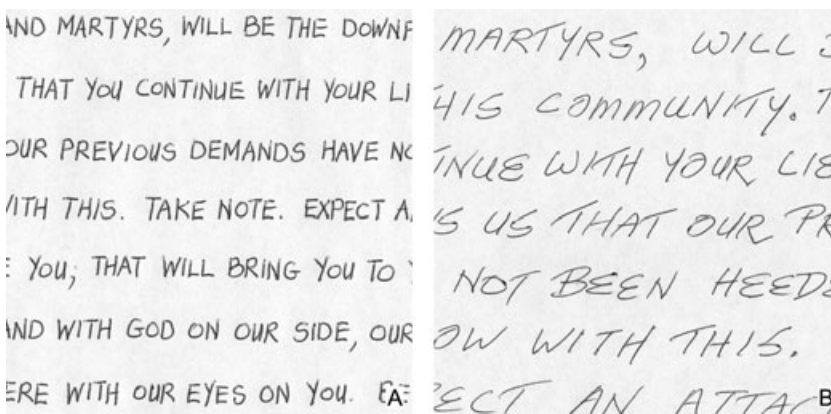 AND MARTYRS, WILL BE THE DOWNF
THAT YOU CONTINUE WITH YOUR LI
OUR PREVIOUS DEMANDS HAVE NO
WITH THIS. TAKE NOTE. EXPECT A
YOU; THAT WILL BRING YOU TO
AND WITH GOD ON OUR SIDE, OUR
ERE WITH OUR EYES ON YOU.
A
MARTYRS, WILL
HIS COMMUNITY. T
INUE WITH YOUR LIE
S US THAT OUR PR
NOT BEEN HEEDE
OW WITH THIS.
ECT AN ATTAC
B